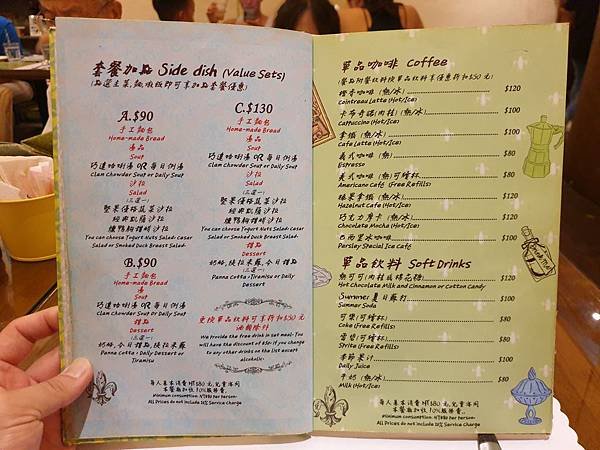 套餐加點 Side dish (Value Sets)
(點選主菜,麵,燉飯即可享加點套餐優惠)
A.$90
手工麵包
Home-made Bread
湯品
Soup
巧達蛤蜊湯 OR 每日例湯
Clam Chowder Soup or Daily Soup
沙拉
Salad
(三選一)
堅果優格蔬菜沙拉
經典凱薩沙拉
燻鴨柳橙時沙拉
You can choose Yogurt Nuts Salad; Caser
Salad or Smoked Duck Breast Salad.
B.$90
手工麵包
Home-made Bread
湯
Soup
巧達蛤蜊湯 OR 每日例湯
Clam Chowder Soup or Daily Soup
甜點
Dessert
(三選一)
奶酪,今日甜點,提拉米蘇
Panna Cotta、Daily Dessert or
Tiramisu
C.$130
手工麵包
Home-made Bread
湯品
Soup
巧達蛤蜊湯 OR 每日例湯
Clam Chowder Soup or Daily Soup
沙拉
Salad
(三選一)
堅果優格蔬菜沙拉
經典凱薩沙拉
燻鴨柳橙時沙拉
You can choose Yogurt Nuts Salad; Caser
Salad or Smoked Duck Breast Salad.
甜點
Dessert
(三選一)
奶酪,提拉米蘇,今日甜點
Panna Cotta、Tiramisu or Daily
Dessert
更換單品飲料可享折扣$50元
酒類除外
We provide the free drink in set meal. You
will have the discount of $50 if you change
to any other drinks on the list except
alcoholic.
每人基本消費 NT$80元,兒童除同
本餐廳加收 10%服務費。
Minimum consumption: NT$80 Per Person.
All Prices do not include 10% Service Charge
單品咖啡 Coffee
(套餐附餐飲料換單品飲料享優惠折扣$50元)
橙香咖啡 (熱/冰) $120
Cointreau Latte (Hot/Ice)
卡布奇諾(肉桂)(熱/冰) $100
Cappuccino (Hot/Ice)
拿鐵 (熱/冰) $100
Cafe Latte (Hot/Ice)
義式咖啡 (熱) $80
Espresso
美式咖啡 (熱)可續杯 $80
Americano Café (Free Refills)
榛果拿鐵 (熱/冰) $120
Hazelnut Cafe (Hot/Ice)
巧克力摩卡 (熱/冰) $120
Chocolate Mocha (Hot/Ice)
巴西里冰咖啡 $100
Parsley Special Ice Café
單品飲料 Soft Drinks
熱可可(肉桂或棉花糖) $120
Hot Chocolate Milk and Cinnamon or Cotton Candy
Summer 夏日蘇打 $100
Summer Soda
可樂(可續杯) $80
Coke (Free Refills)
雪碧(可續杯) $80
Sprite (Free Refills)
季節果汁 $100
Daily Juice
牛奶 (熱/冰) $80
Milk (Hot/Ice)
每人基本消費 NT$80元,兒童除同
本餐廳加收 10%服務費。
Minimum consumption: NT$80 Per Person.
All Prices do not include 10% Service Charge